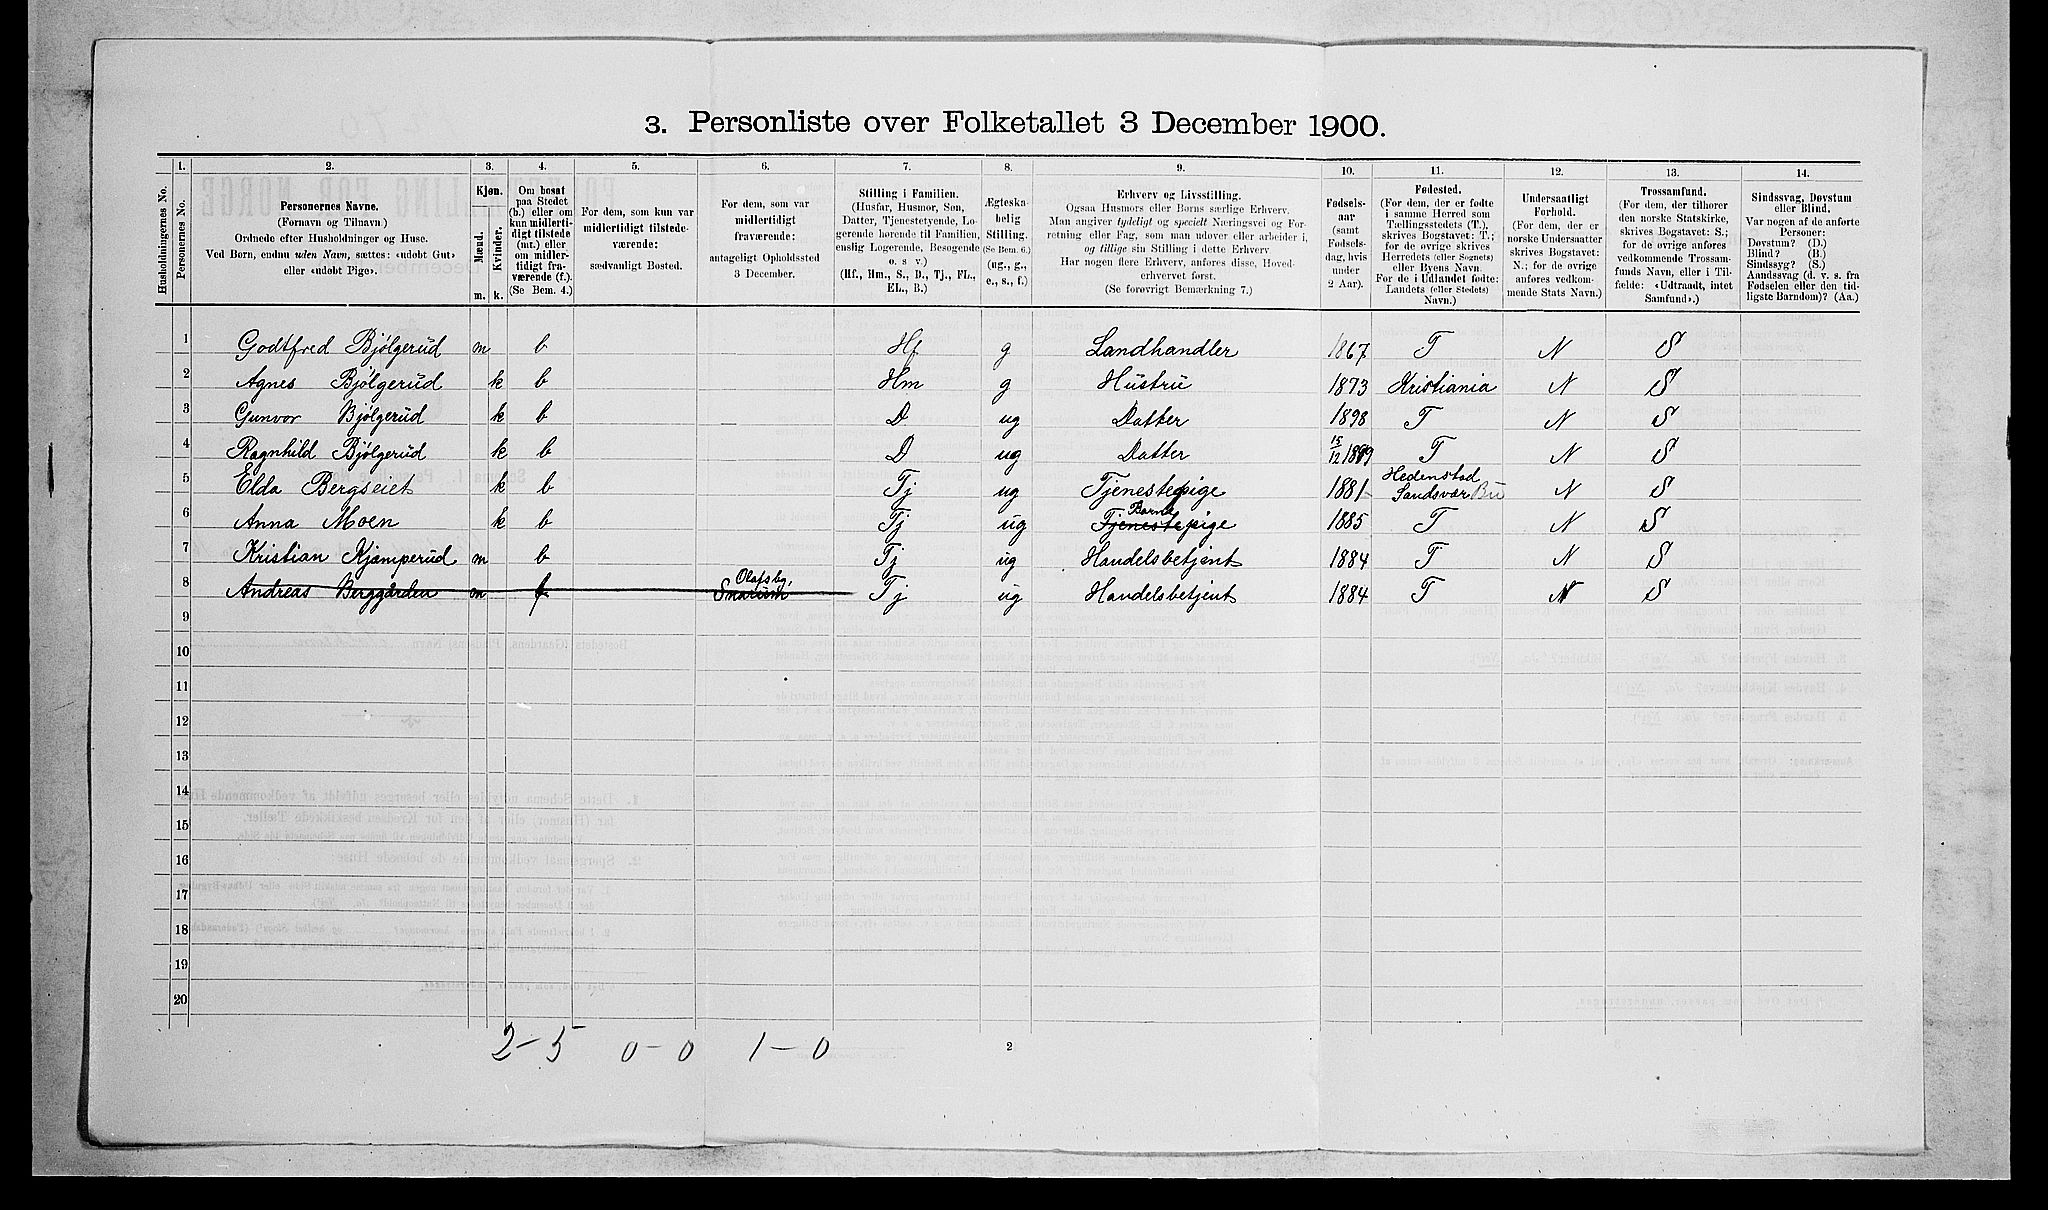 3. Personliste over Folketallet 3 December 1900.
1. 2. 3. 4. 5. 6. 7. 8. 9. 10. 11. 12. 13. 14.
Husholdningernes No.
Personernes No.
Personernes Navne.
(Fornavn og Tilnavn.)
Ordnede efter Husholdninger og Huse.
Ved Børn, endnu uden Navn, sættes: «udøbt Gut»
eller «udøbt Pige».
Kjøn.
Mænd.
Kvinder.
m. k.
Om bosat
paa Stedet
(b.) eller om
kun midlerti-
digt tilstede
(mt.) eller
om midler-
tidigt fra-
værende (f.)
(Se Bem. 4.)
For dem, som kun var
midlertidigt tilstede-
værende:
sædvanligt Bosted.
For dem, som var
midlertidigt
fraværende:
antageligt Opholdssted
3 December.
Stilling i Familien.
(Husfar, Husmor, Søn,
Datter, Tjenestetyende, Lo-
gerende hørende til Familien,
enslig Logerende, Besøgende
o. s v.)
(Hf., Hm., S., D., Tj., FL.,
EL., B.)
Ægteska-
belig
Stilling.
(Se Bem. 6.)
(ug., g.,
e., s., f.)
Erhverv og Livsstilling.
Ogsaa Husmors eller Børns særlige Erhverv.
Man angiver tydeligt og specielt Næringsvei og For-
retning eller Fag, som man udøver eller arbeider i,
og tillige sin Stilling i dette Erhverv.
Har nogen flere Erhverv, anføres disse, Hoved-
erhvervet først.
(Se forøvrigt Bemærkning 7.)
Fødsels-
aar
(samt
Fødsels-
dag, hvis
under
2 Aar).
Fødested.
(For dem, der er fødte
i samme Herred som
Tællingsstedets (T.),
skrives Bogstavet: T.;
for de øvrige skrives
Herredets (eller Sognets)
eller Byens Navn.
For de i Udlandet fødte:
Landets (eller Stedets)
Navn.)
Undersaatligt
Forhold.
(For dem, der er
norske Undersaatter
skrives Bogstavet:
N.; for de øvrige
anføres vedkom-
mende Stats Navn.)
Trossamfund.
(For dem, der tilhører
den norske Statskirke,
skrives Bogstavet: S.;
for de øvrige anføres
vedkommende Trossam-
funds Navn, eller i Til-
fælde: «Udtraadt, intet
Samfund».)
Sindssvag, Døvstum
eller Blind.
Var nogen af de anførte
Personer:
Døvstum? (D.)
Blind? (B.)
Sindssyg? (S.)
Aandssvag (d. v. s. fra
Fødselen eller den tid-
ligste Barndom)? (Aa.)
1 Godtfred Bjølgerud m b Hf g Landhandler 1867 T N S
2 Agnes Bjølgerud k b Hm g Hustru 1873 Kristiania N S
3 Gunvor Bjølgerud k b D ug Datter 1898 T N S
4 Ragnhild Bjølgerud k b D ug Datter 15/12 1899 T N S
5 Elda Bergseiet k b Tj ug Tjenestepige 1881 Hedenstad
Sandsvær Bu N S
6 Anna Moen k b Tj ug Barne
Tjenestepige 1885 T N S
7 Kristian Kjæmperud m b Tj ug Handelsbetjent 1884 T N S
8 Andreas Berggården m f Olafsby,
Snarum Tj ug Handelsbetjent 1884 T N S
9
10
11
12
13
14
15
16
17
18
19
20
2-5 0-0 1-0
2